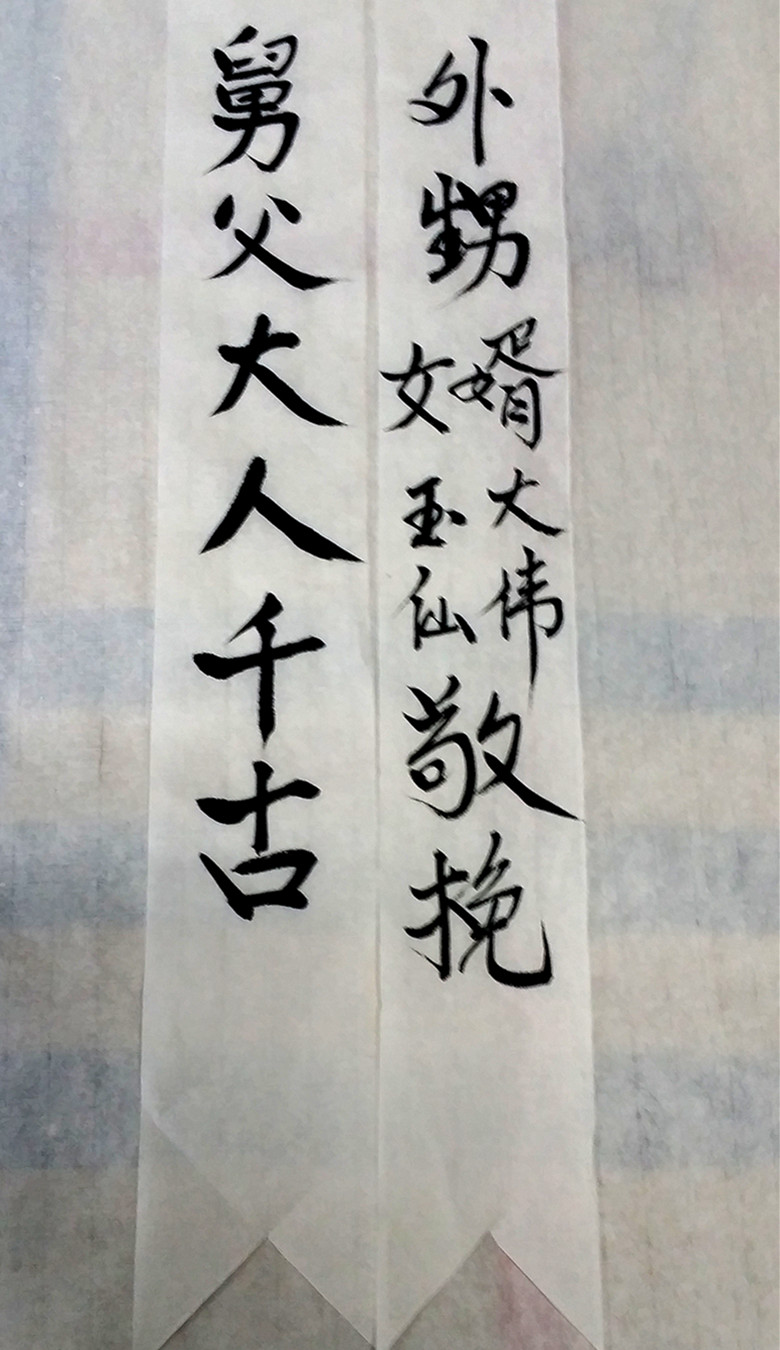 外甥
婿大伟
女玉仙
敬挽
舅父大人千古